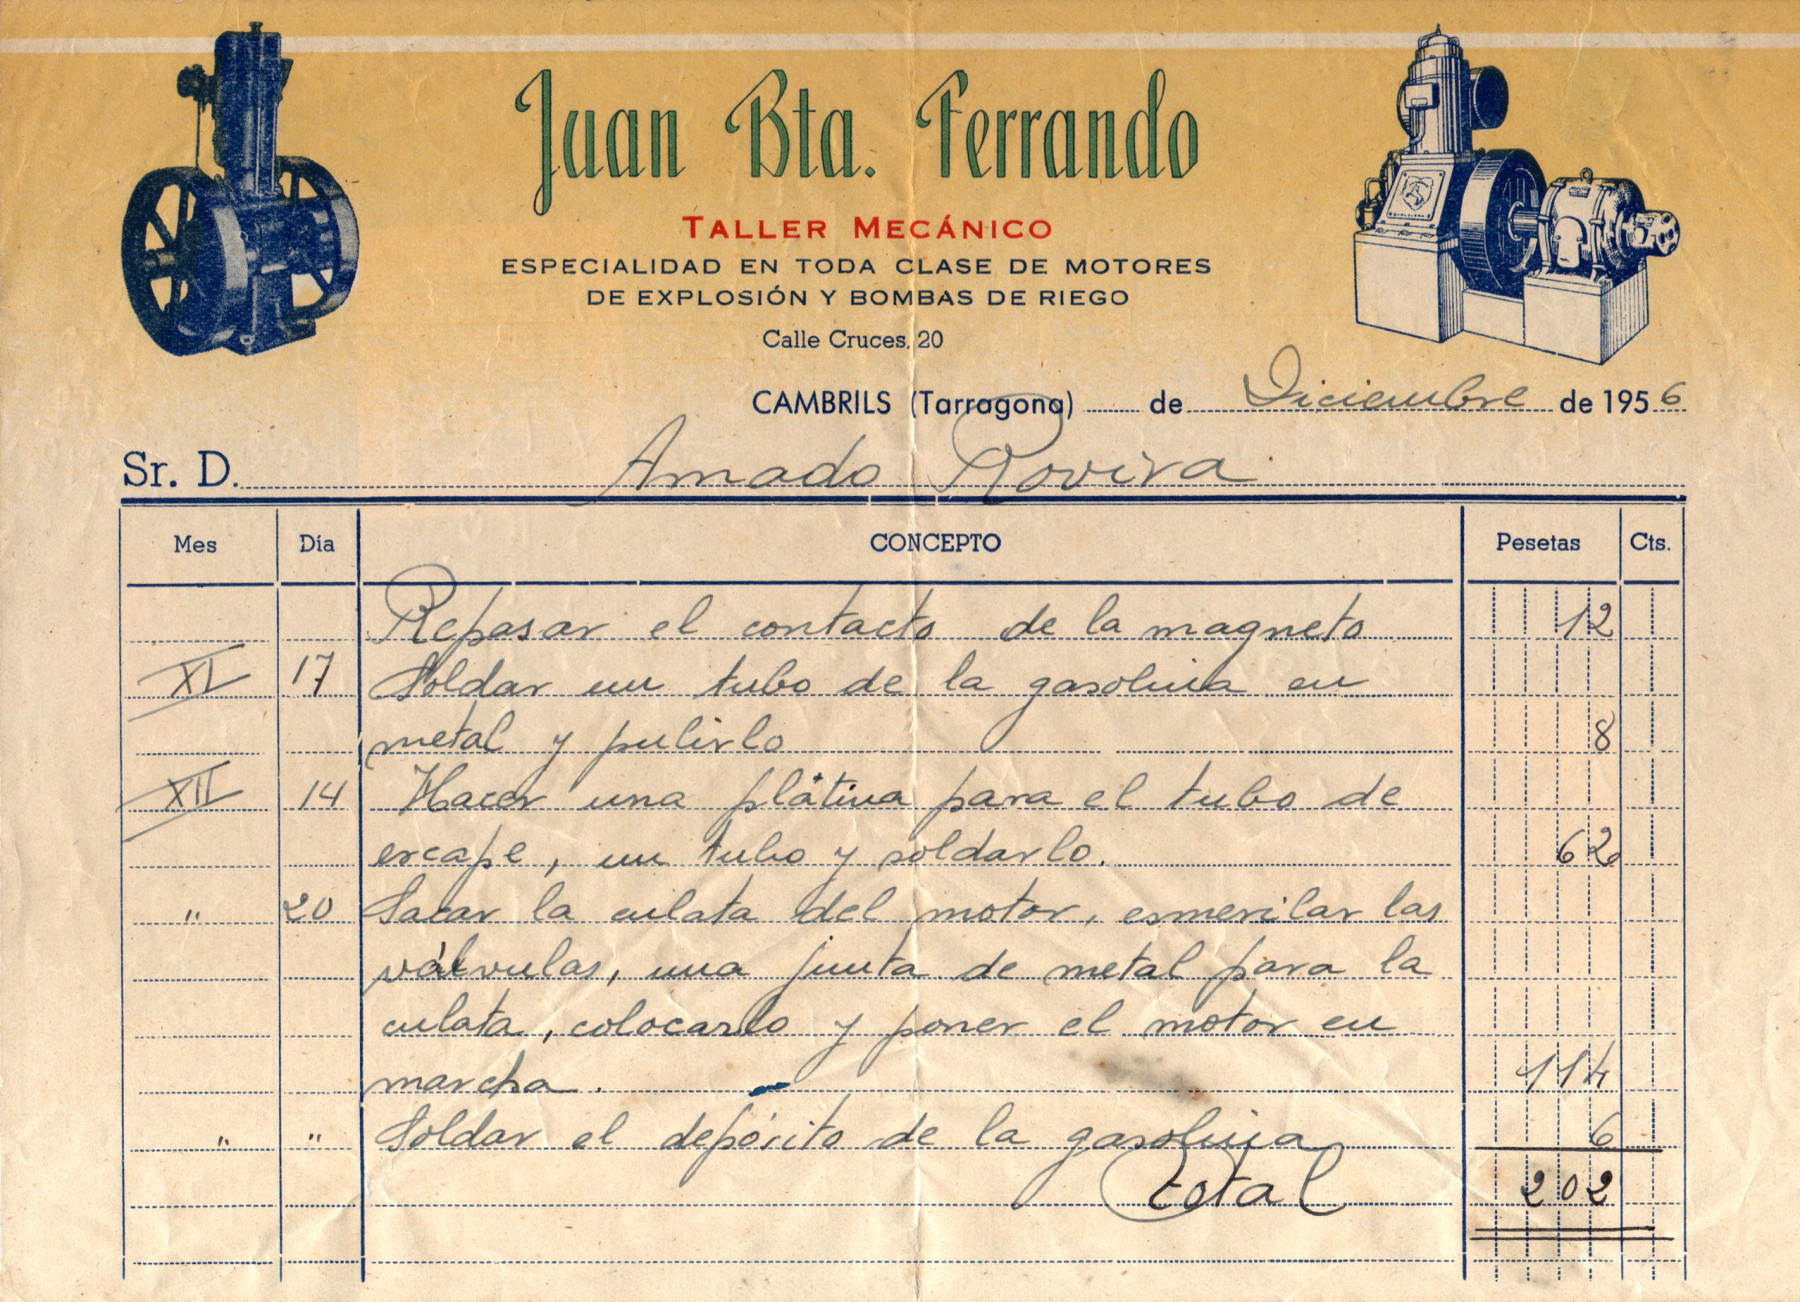 Juan Bta. Ferrando
TALLER MECÁNICO
ESPECIALIDAD EN TODA CLASE DE MOTORES
DE EXPLOSIÓN Y BOMBAS DE RIEGO
Calle Cruces, 20
CAMBRILS (Tarragona) de Diciembre de 1956
Sr. D. Amado Rovira
Mes Día CONCEPTO Pesetas Cts.
Repasar el contacto de la magneto 12
XI 17 Soldar un tubo de la gasolina en
metal y pulirlo 8
XII 14 Hacer una plátina para el tubo de
escape, un tubo y soldarlo. 62
" 20 Sacar la culata del motor, esmerilar las
válvulas, una junta de metal para la
culata, colocarlo y poner el motor en
marcha. 114
" " Soldar el depósito de la gasolina 6
Total 202